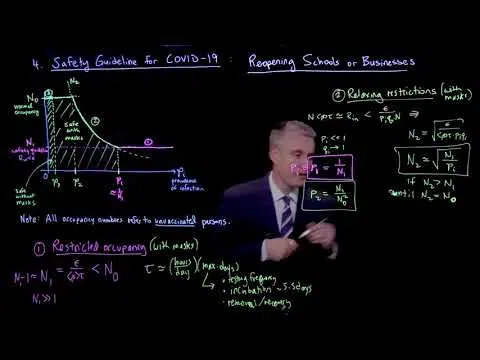 4. Safety Guideline for COVID-19 : Reopening Schools or Businesses
N₂
N₀
normal occupancy
safe with masks
N₁
safety guideline
safe without masks
0
P₃
P₂
P₁
≈ 1/N₁
prevalence of infection
Note: All occupancy numbers refer to unvaccinated persons.
① Restricted occupancy (with masks)
N₁-1 ≈ N₁ = ε/⟨β⟩τ < N₀
N₁ >> 1
τ ≈ (hours/day)(max. days)
• testing frequency
• incubation ~5.5 days
• removal/recovery
② Relaxing restrictions (with masks)
P₁ << 1
q₁ → 1
P₁ = 1/N₁
P₂ = N₁/N₀²
N₂ = √(N₁/P₁)
if N₂ > N₁
until N₂ = N₀